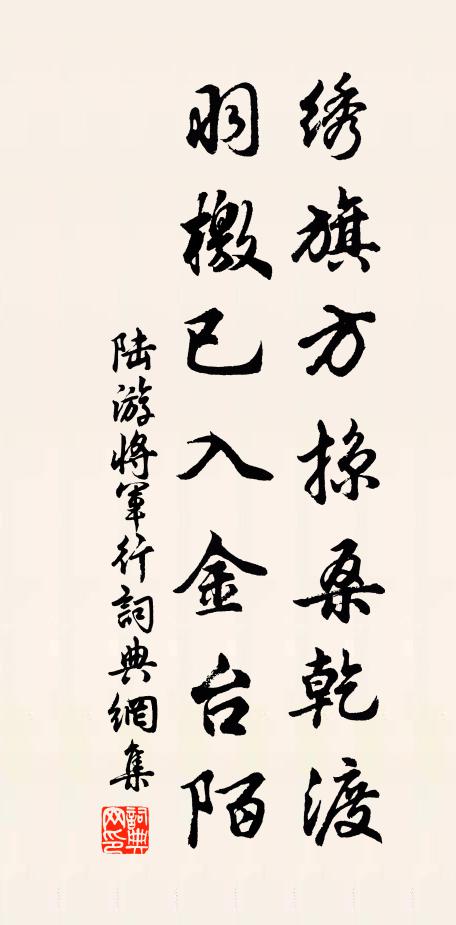 绣旗方掠桑乾渡
羽檄已入金台陌
陆游将军行词典網集
詞典网印